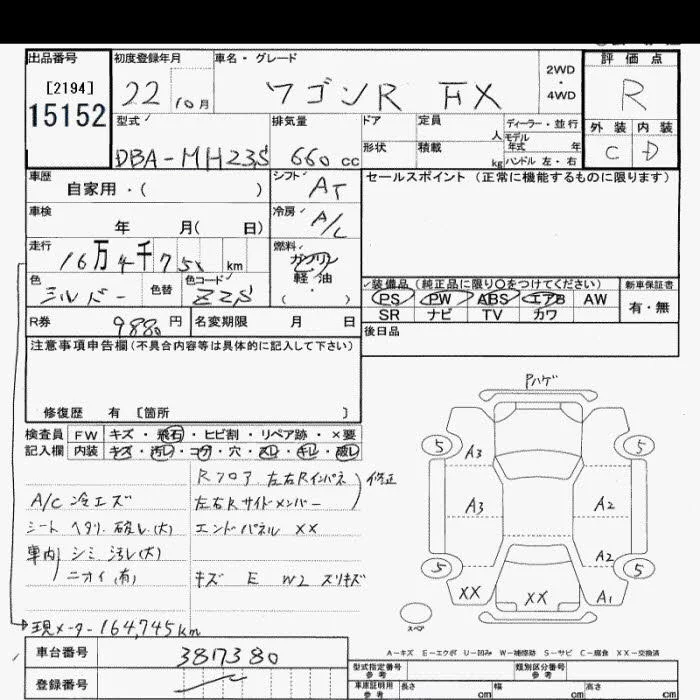 出品番号
[2194]
15152
初度登録年月
22 10月
車名・グレード
ワゴンR FX
2WD
・
4WD
評価点
R
外装 内装
C D
型式
DBA-MH23S
排気量
660 cc
ドア
形状
定員 人
積載 kg
ディーラー・並行
モデル
年式 年
ハンドル 左・右
車歴
自家用・( )
シフト
AT
セールスポイント (正常に機能するものに限ります)
車検
年 月( 日)
冷房
A/C
走行
16万4千75 km
燃料
ガソリン
軽・油
( )
色
シルバー
色替
色コード
Z2S
装備品 (純正品に限り〇をつけてください)
PS PW ABS エアB AW
SR ナビ TV カワ
新車保証書
有・無
R券
9880円
名変期限 月 日
後日品
注意事項申告欄(不具合内容等は具体的に記入して下さい)
修復歴 有 [箇所 ]
検査員
記入欄
FW キズ・飛石・ヒビ割・リペア跡・×要
内装 キズ・汚レ・コゲ・穴・スレ・キレ・破レ
Rフロア 左右Rインパネ 修正
左右Rサイドメンバー
エンドパネル XX
キズ E W2 スリキズ
A/C 冷エズ
シート ヘタリ 破レ(大)
車内 シミ 汚レ(大)
ニオイ(有)
現メーター 164,745km
Pハゲ
5 A3 5
A3 A2
A2
5 5
XX XX A1
スペア
A-キズ E-エクボ U-凹み W-補修跡 S-サビ C-腐食 XX-交換済
車台番号
3817380
登録番号
型式指定番号
参考
類別区分番号
参考
車庫証明用
参考
長さ cm
幅 cm
高さ cm